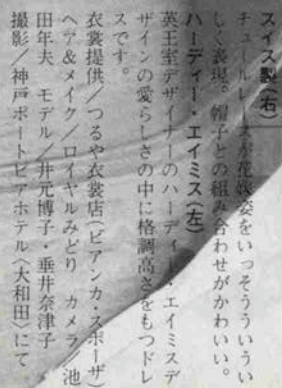 スイス製(右)
チュールレースが花嫁姿をいっそういうい
しく表現。帽子との組み合わせがかわいい。
ハーディー・エイミス(左)
英王室デザイナーのハーディー・エイミスデ
ザインの愛らしさの中に格調高さをもつドレ
スです。
衣裳提供/つるや衣裳店(ビアンカ・スポーザ)
ヘア&メイク/ロイヤルみどり カメラ/池
田年夫 モデル/井元博子・垂井奈津子
撮影/神戸ポートピアホテル〈大和田〉にて